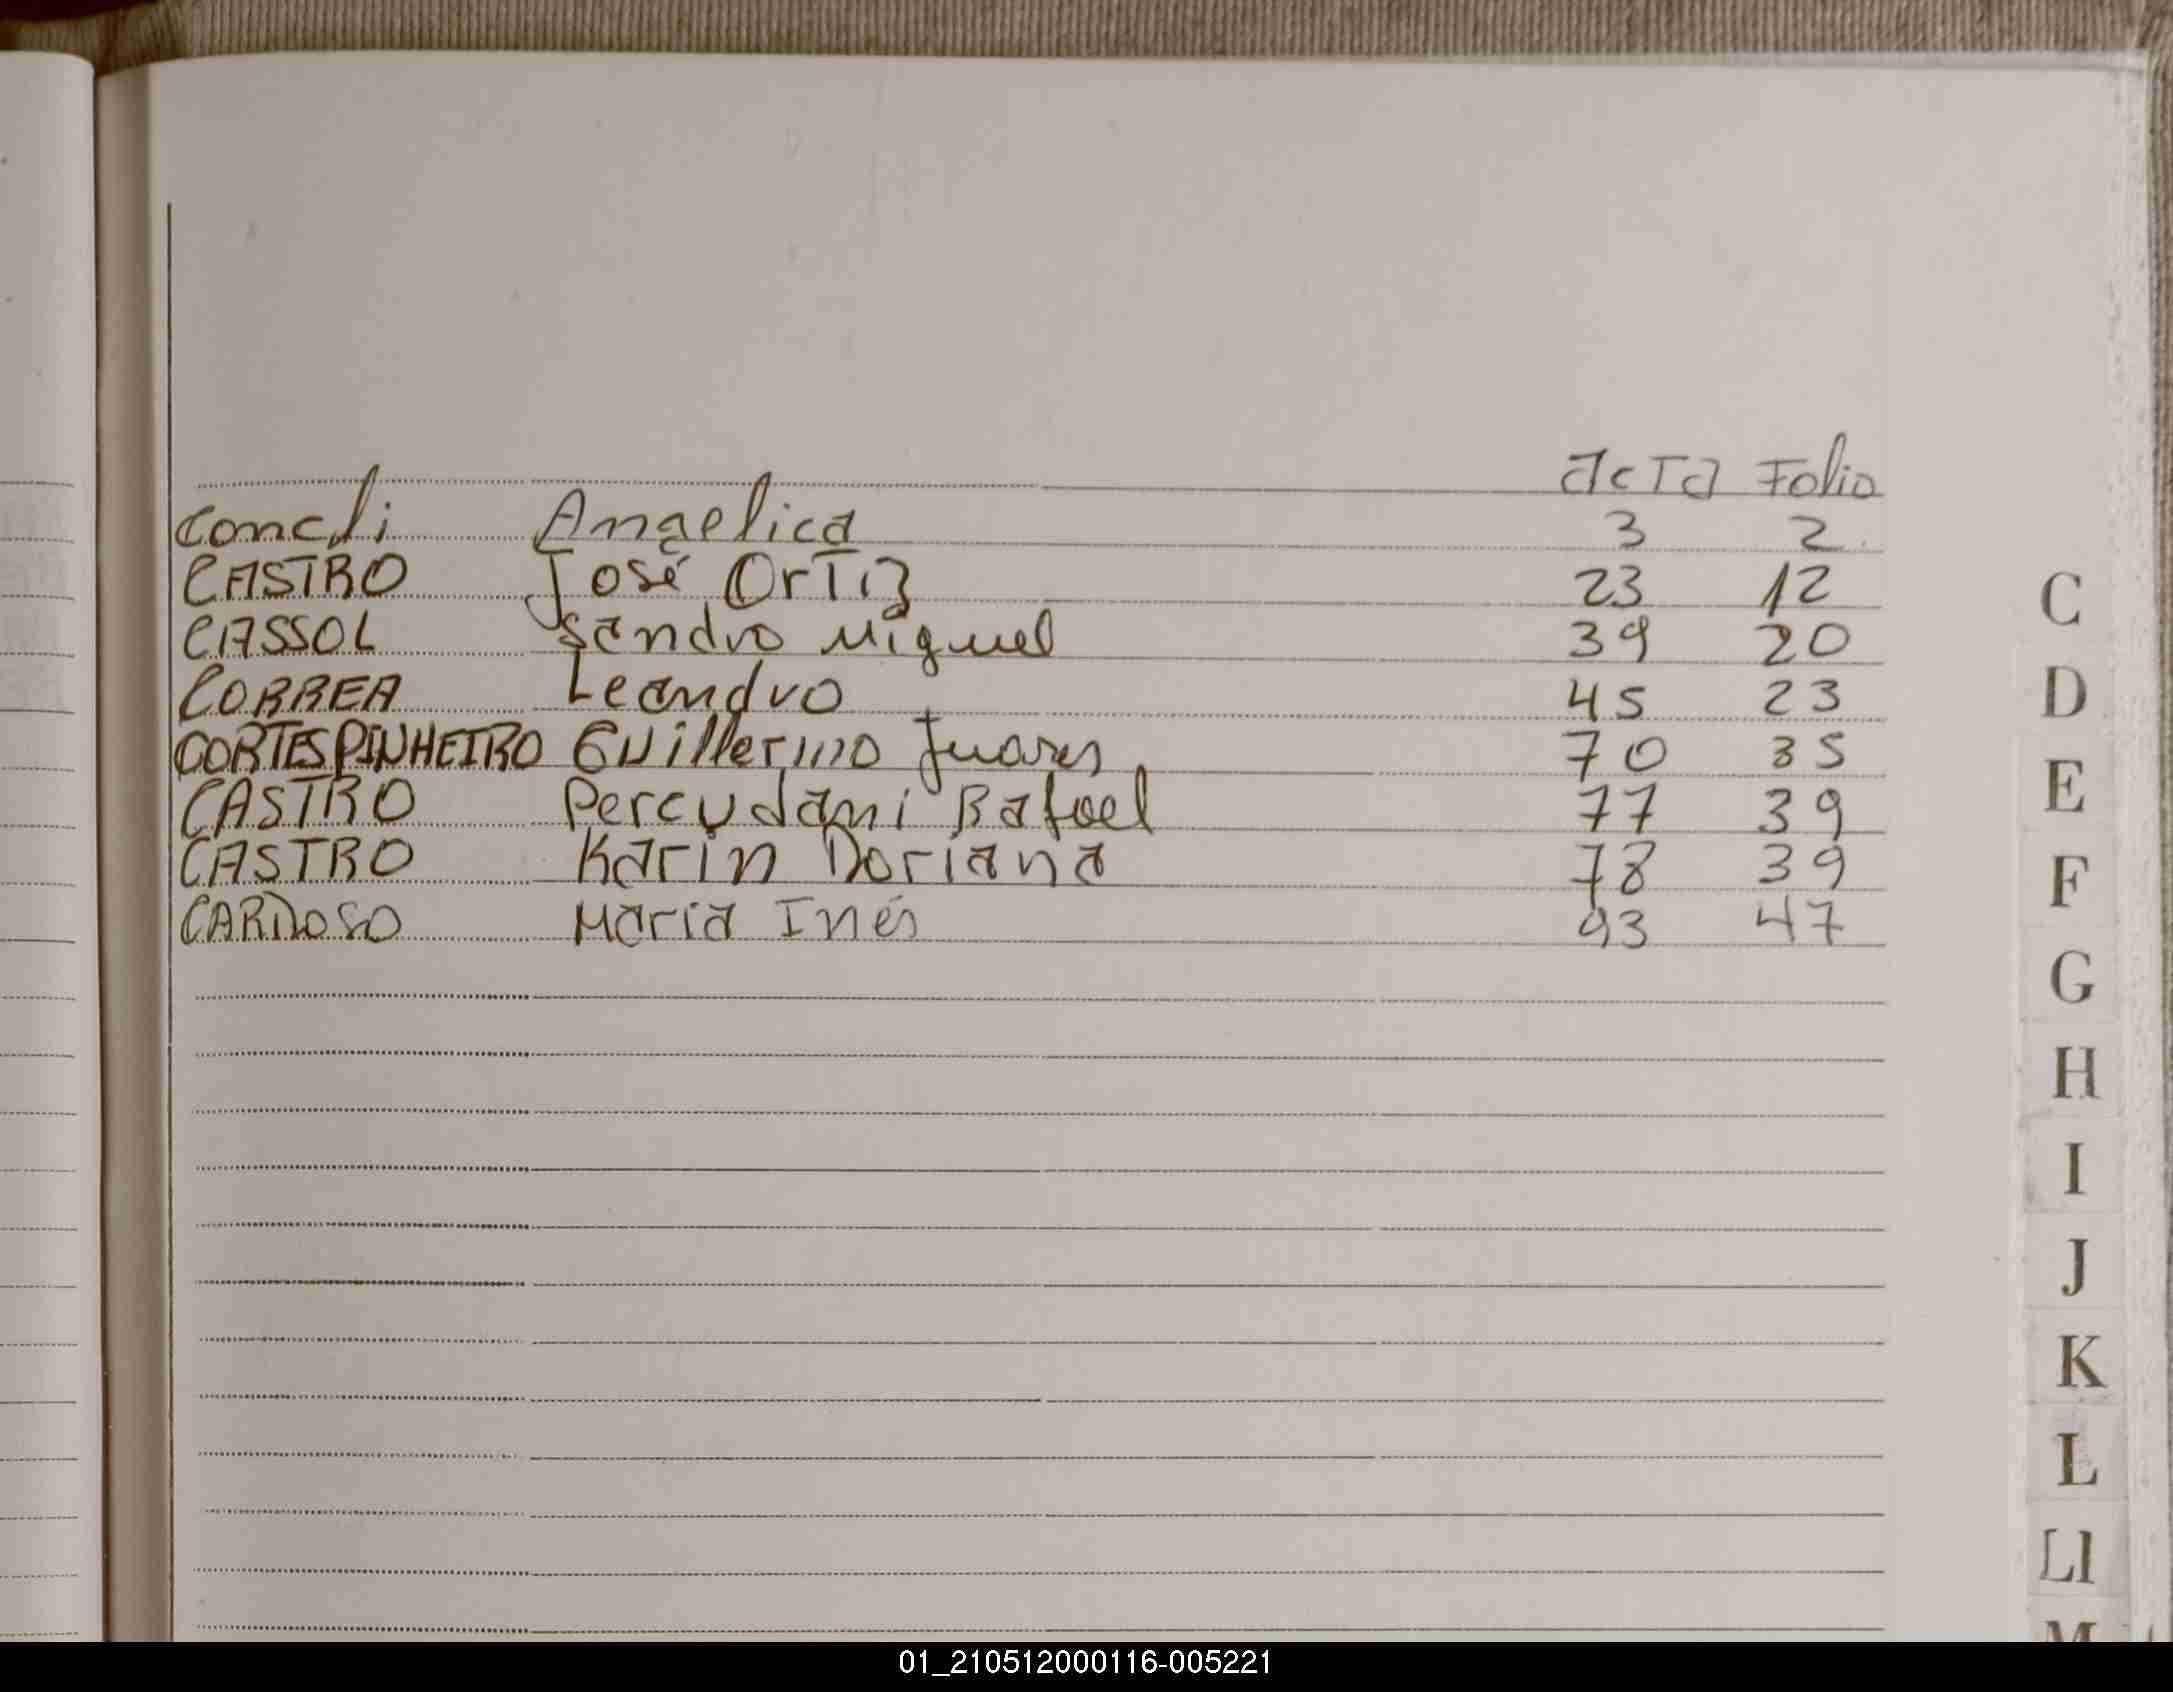 Acta Folio
Concli Angelica 3 2
CASTRO José Ortiz 23 12
CASSOL Sandro Miguel 39 20
CORREA Leandro 45 23
CORTES PINHEIRO Guillermo Juares 70 35
CASTRO Percudani Rafael 77 39
CASTRO Karin Doriana 78 39
CARDOSO Maria Inés 93 47
C
D
E
F
G
H
I
J
K
L
Ll
M
01_210512000116-005221